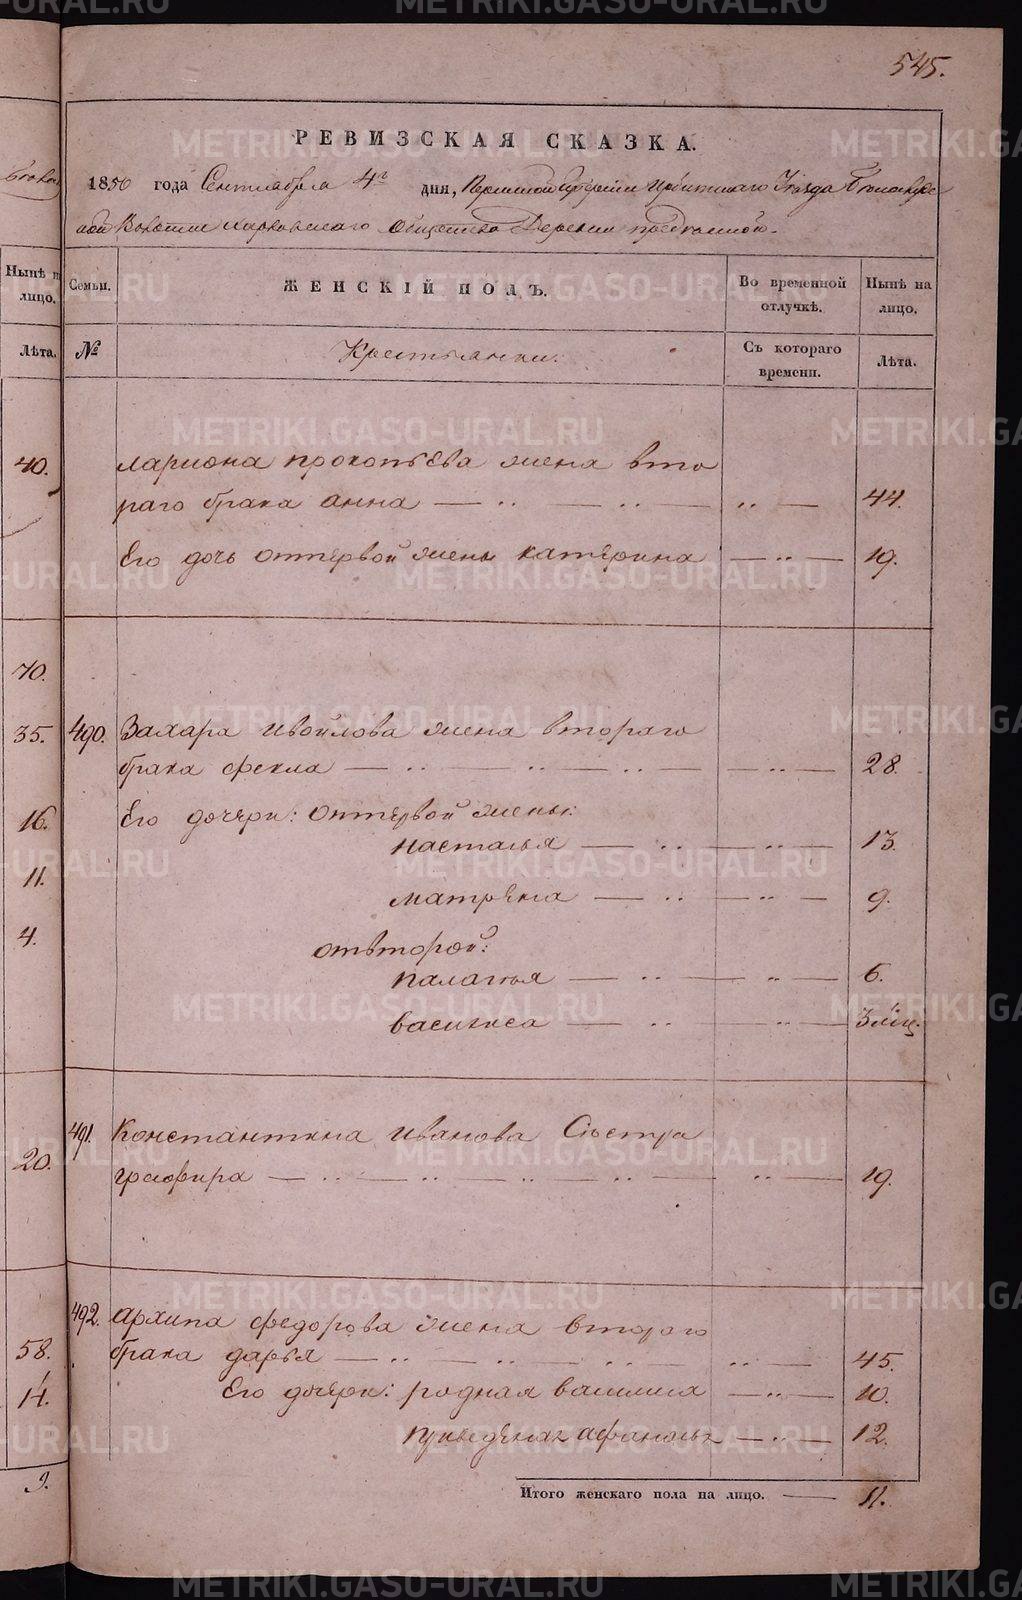 545.
РЕВИЗСКАЯ СКАЗКА.
1850 года Сентлабря 4го дня, Пермской губернии Ирбитскаго Уезда
Волости Харловскаго Общества Деревни
Нынѣ на лицо.
Семьи.
ЖЕНСКІЙ ПОЛЪ.
Во временной отлучкѣ.
Нынѣ на лицо.
Лѣта.
№
Крестьянки.
Съ котораго времени.
Лѣта.
40.
лариона прокопьева жена вто
раго брака анна — .. — .. — .. — 44.
Его дочь отпервой жены катерина — .. — 19.
70.
35. 490. Захара ивойлова жена втораго
брака фекла — .. — .. — .. — .. — 28.
16. Его дочери: отпервой жены:
насталья — .. — .. — 13.
11. матрена — .. — .. — 9.
4. отвторой:
палагья — .. — .. — 6.
василиса — .. — .. — 3 мц.
491. Константина иванова Сьестра
20. графира — .. — .. — .. — .. — .. — 19.
492. архипа федорова жена втораго
58. брака дарья — .. — .. — .. — .. — 45.
14. Его дочери: родная василиса — .. — 10.
приведеная афанасья — .. — 12.
9. Итого женскаго пола на лицо. — 11.
METRIKI.GASO-URAL.RU